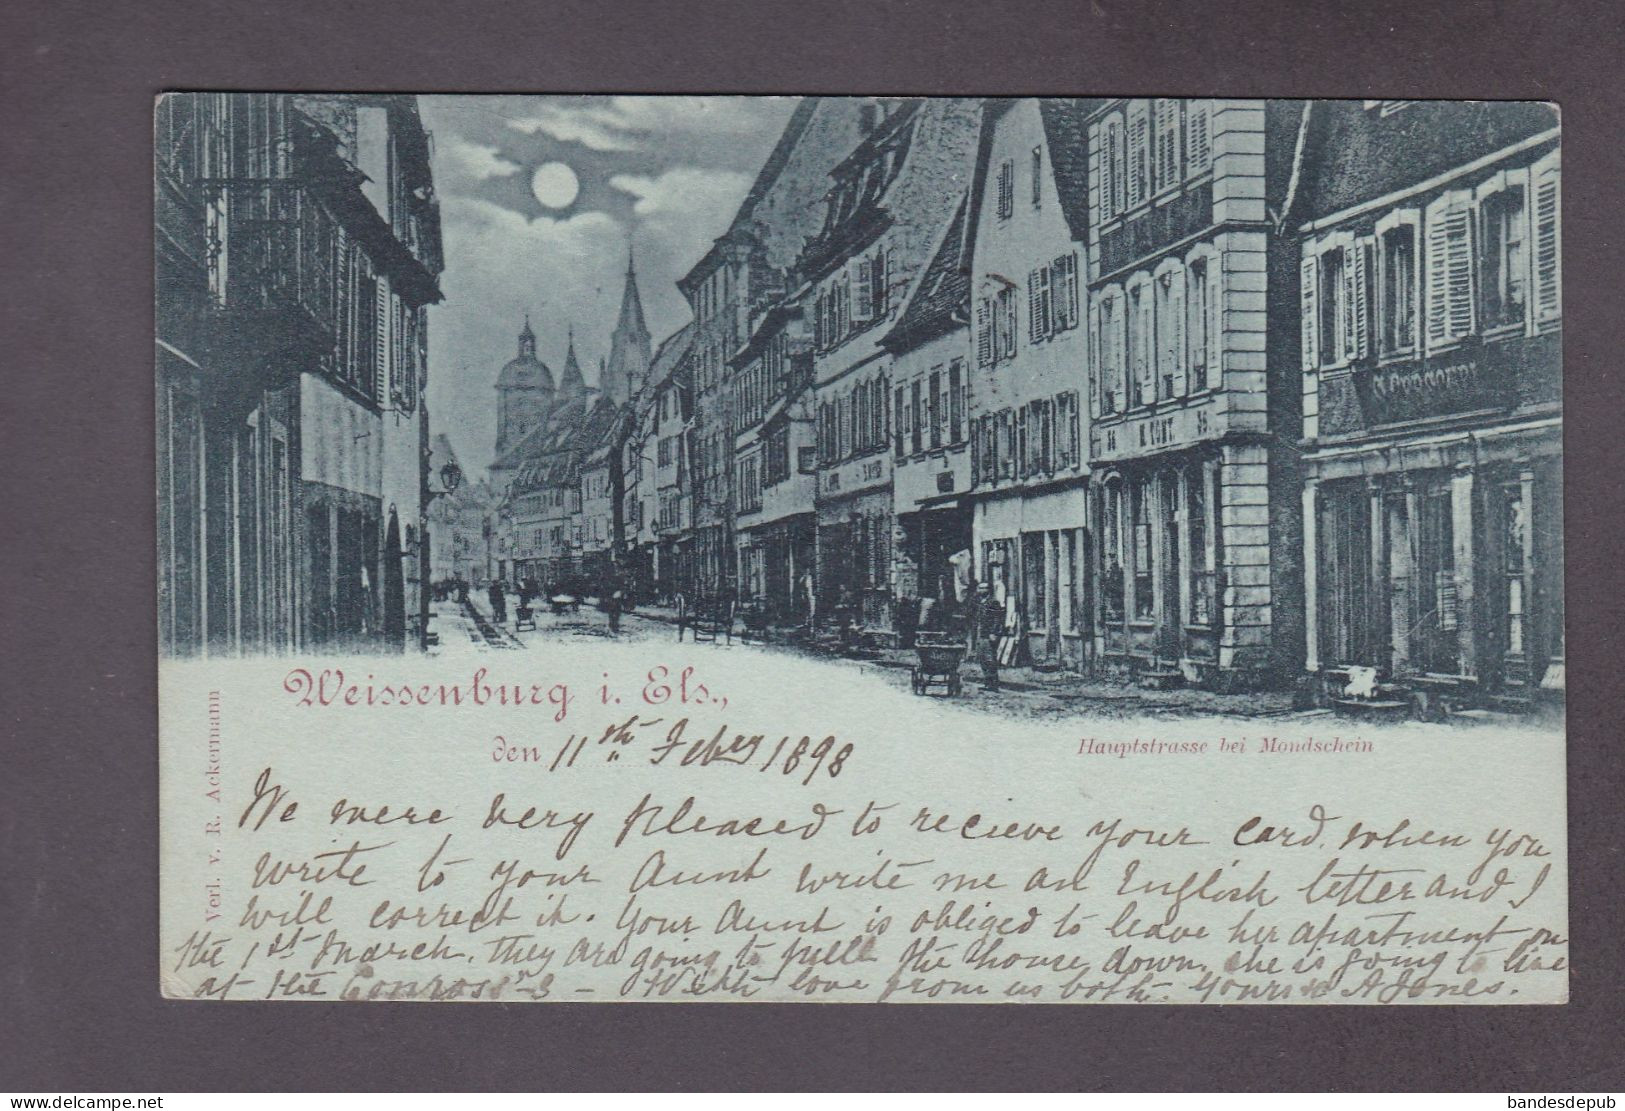 M. KUNT.
Weissenburg i. Els.,
den 11th Febry 1898
Hauptstrasse bei Mondschein
Verl. v. R. Ackermann
We were very pleased to recieve your card. when you
write to your Aunt write me an English letter and I
will correct it. Your Aunt is obliged to leave her apartment on
the 1st March. they are going to pull the house down. she is going to live
at the - With love from us both. Yours A Jones.
delcampe.net
bandesdepub